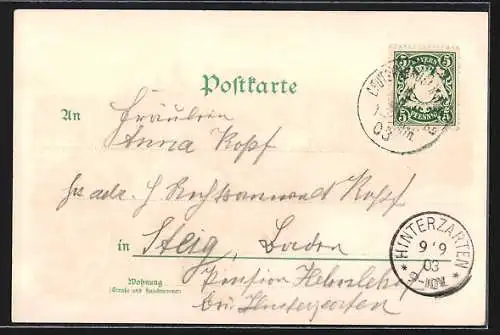 Postkarte
BAYERN
5 5
PFENNIG
03
An Fräulein
Anna Kopf
pr. adr. H Rechtsanwalt Kopf
in Steig, Baden
HINTERZARTEN
9 9
03
9-10V.
Wohnung
(Straße und Hausnummer)
Pension
bei Hinterzarten